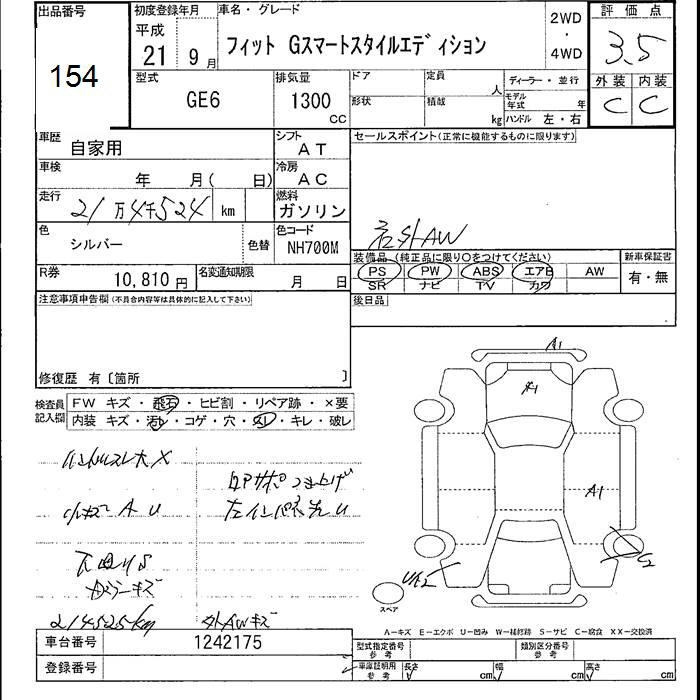 出品番号
154
初度登録年月
平成
21 9月
車名・グレード
フィット Gスマートスタイルエディション
2WD
・
4WD
評価点
3.5
外装 内装
C C
型式
GE6
排気量
1300
CC
ドア
定員
人
形状
積載
kg
ディーラー・並行
モデル年式 年
ハンドル 左・右
車歴
自家用
シフト
AT
セールスポイント(正常に機能するものに限ります)
車検
年 月( 日)
冷房
AC
走行
21万4千524 km
燃料
ガソリン
社外AW
色
シルバー
色替
色コード
NH700M
装備品 (純正品に限り○をつけてください)
PS PW ABS エアB AW
SR ナビ TV カワ
新車保証書
有・無
R券
10,810円
名変通知期限
月 日
後日品
注意事項申告欄(不具合内容等は具体的に記入して下さい)
修復歴 有〔箇所 〕
検査員記入欄
FW キズ・飛石・ヒビ割・リペア跡・×要
内装 キズ・汚れ・コゲ・穴・スレ・キレ・破レ
A1
A1
A1
小キズ A U
214525km
外AWキズ
スペア
A―キズ E―エクボ U―凹み W―補修跡 S―サビ C―腐食 XX―交換済
車台番号
1242175
登録番号
型式指定番号
参考
類別区分番号
参考
車庫証明用
参考
長さ cm
幅 cm
高さ cm